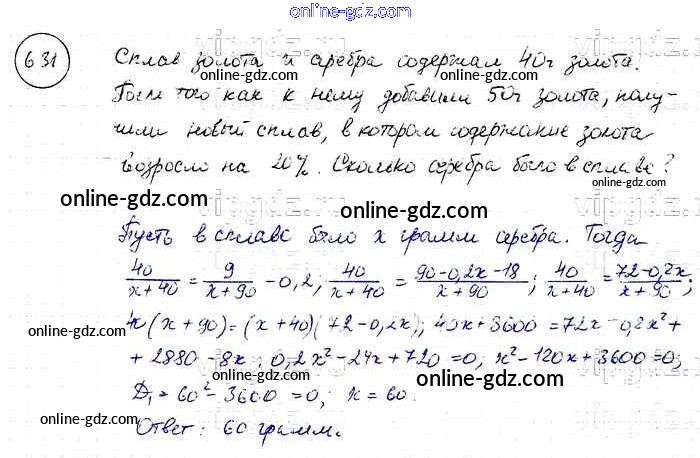 online-gdz.com
631 Сплав золота и серебра содержал 40г золота.
online-gdz.com online-gdz.com
После того как к нему добавили 50г золота, полу-
чили новый сплав, в котором содержание золота
online-gdz.com
возросло на 20%. Сколько серебра было в сплаве?
online-gdz.com
online-gdz.com
online-gdz.com
Пусть в сплаве было x грамм серебра. Тогда
40/(x+40) = 9/(x+90) - 0,2; 40/(x+40) = (90-0,2x-18)/(x+90); 40/(x+40) = (72-0,2x)/(x+90);
4(x+90)=(x+40)(72-0,2x); 40x+3600=72x-0,2x²+
online-gdz.com
+2880-8x; 0,2x²-24x+720=0; x²-120x+3600=0;
online-gdz.com
D₁=60²-3600=0; x=60.
online-gdz.com online-gdz.com
Ответ: 60 грамм.
online-gdz.com